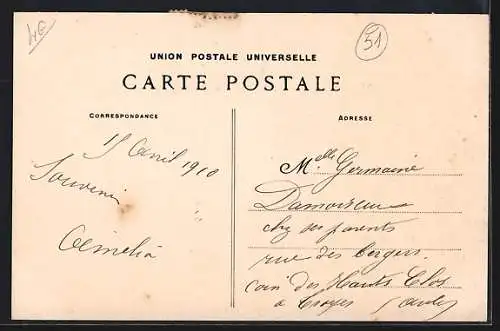 51
UNION POSTALE UNIVERSELLE
CARTE POSTALE
CORRESPONDANCE
ADRESSE
15 Avril 1910
Souvenir
M.elle Germaine
chez ses parents
rue des
coin des Hauts Clos
à Troyes (Aube)